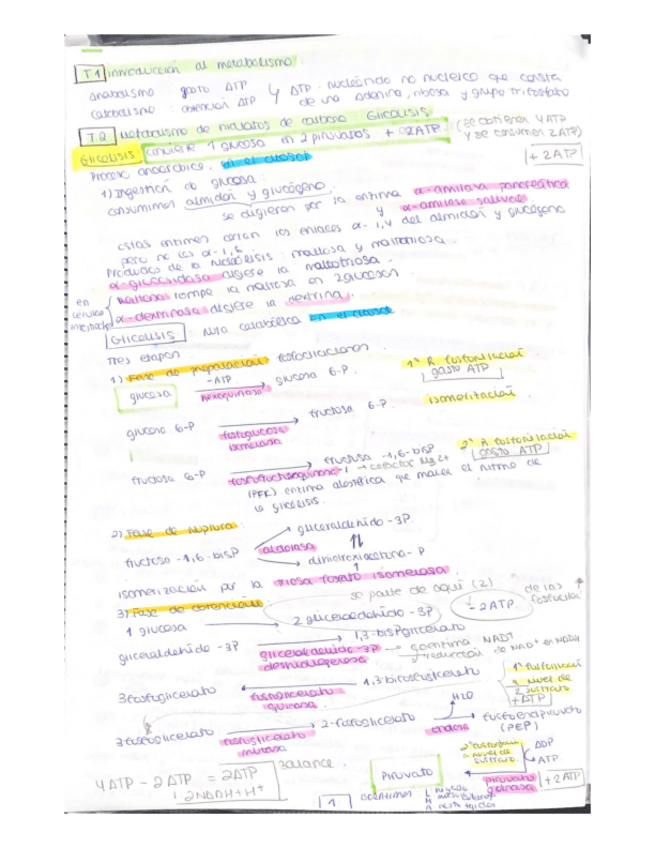 T.1 Introducción al metabolismo
anabolismo gasto ATP
ATP: nucleótido no nucleico que consta
catabolismo: obtención ATP
de una adenina, ribosa y grupo trifosfato
T.2 Metabolismo de hidratos de carbono GLICOLISIS
GLICOLISIS convierte 1 glucosa en 2 piruvatos + 2ATP (se obtienen 4 ATP
y se consumen 2 ATP)
Proceso anaeróbico. en el citosol
+ 2 ATP
1) Ingestión de glucosa
consumimos almidón y glucógeno
se digieren por la enzima α-amilasa pancreática
y α-amilasa salival
estas enzimas cortan los enlaces α-1,4 del almidón y glucógeno
pero no los α-1,6
Productos de la : maltosa y maltotriosa.
α-glucosidasa digiere la maltotriosa.
en Maltasa rompe la maltosa en 2 glucosas.
α-dextrinasa digiere la dextrina.
GLICOLISIS: Ruta catabólica en el citosol
Tres etapas
1) Fase de preparación
1ª R. fosforilación
gasto ATP
glucosa -ATP glucosa 6-P.
hexoquinasa
isomerización
glucosa 6-P fructosa 6-P.
fosfoglucosa
isomerasa
2ª R fosforilación
gasto ATP
fructosa 6-P fructosa -1,6-bisP
fosfofructoquinasa-1 → cofactor Mg2+
(PFK) enzima alostérica que marca el ritmo de
la glicolisis.
2) Fase de ruptura:
gliceraldehido -3P.
fructosa -1,6-bisP aldolasa
dihidroxiacetona-P
isomerización por la triosa fosfato isomerasa
se parte de aquí (2)
3) Fase de obtención
- 2ATP
1 glucosa 2 gliceraldehido -3P
1,3-bisPglicerato
gliceraldehido -3P gliceraldehido -3P → coenzima NAD+
deshidrogenasa reducción de NAD+ en NADH
3fosfoglicerato 1,3-bifosfoglicerato
fosfoglicerato
quinasa
1ª fosforilación
a nivel de
sustrato
+ ATP
H2O
3fosfoglicerato 2-fosfoglicerato fosfoenolpiruvato
fosfoglicerato enolasa (PEP)
mutasa
2ª fosforilación
a nivel de
sustrato
ADP
ATP
4ATP - 2ATP = 2ATP Balance.
2NADH+H+
Piruvato
piruvato
quinasa
+ 2 ATP
1
isoenzimas L hígado
M músculo
A resto tejidos